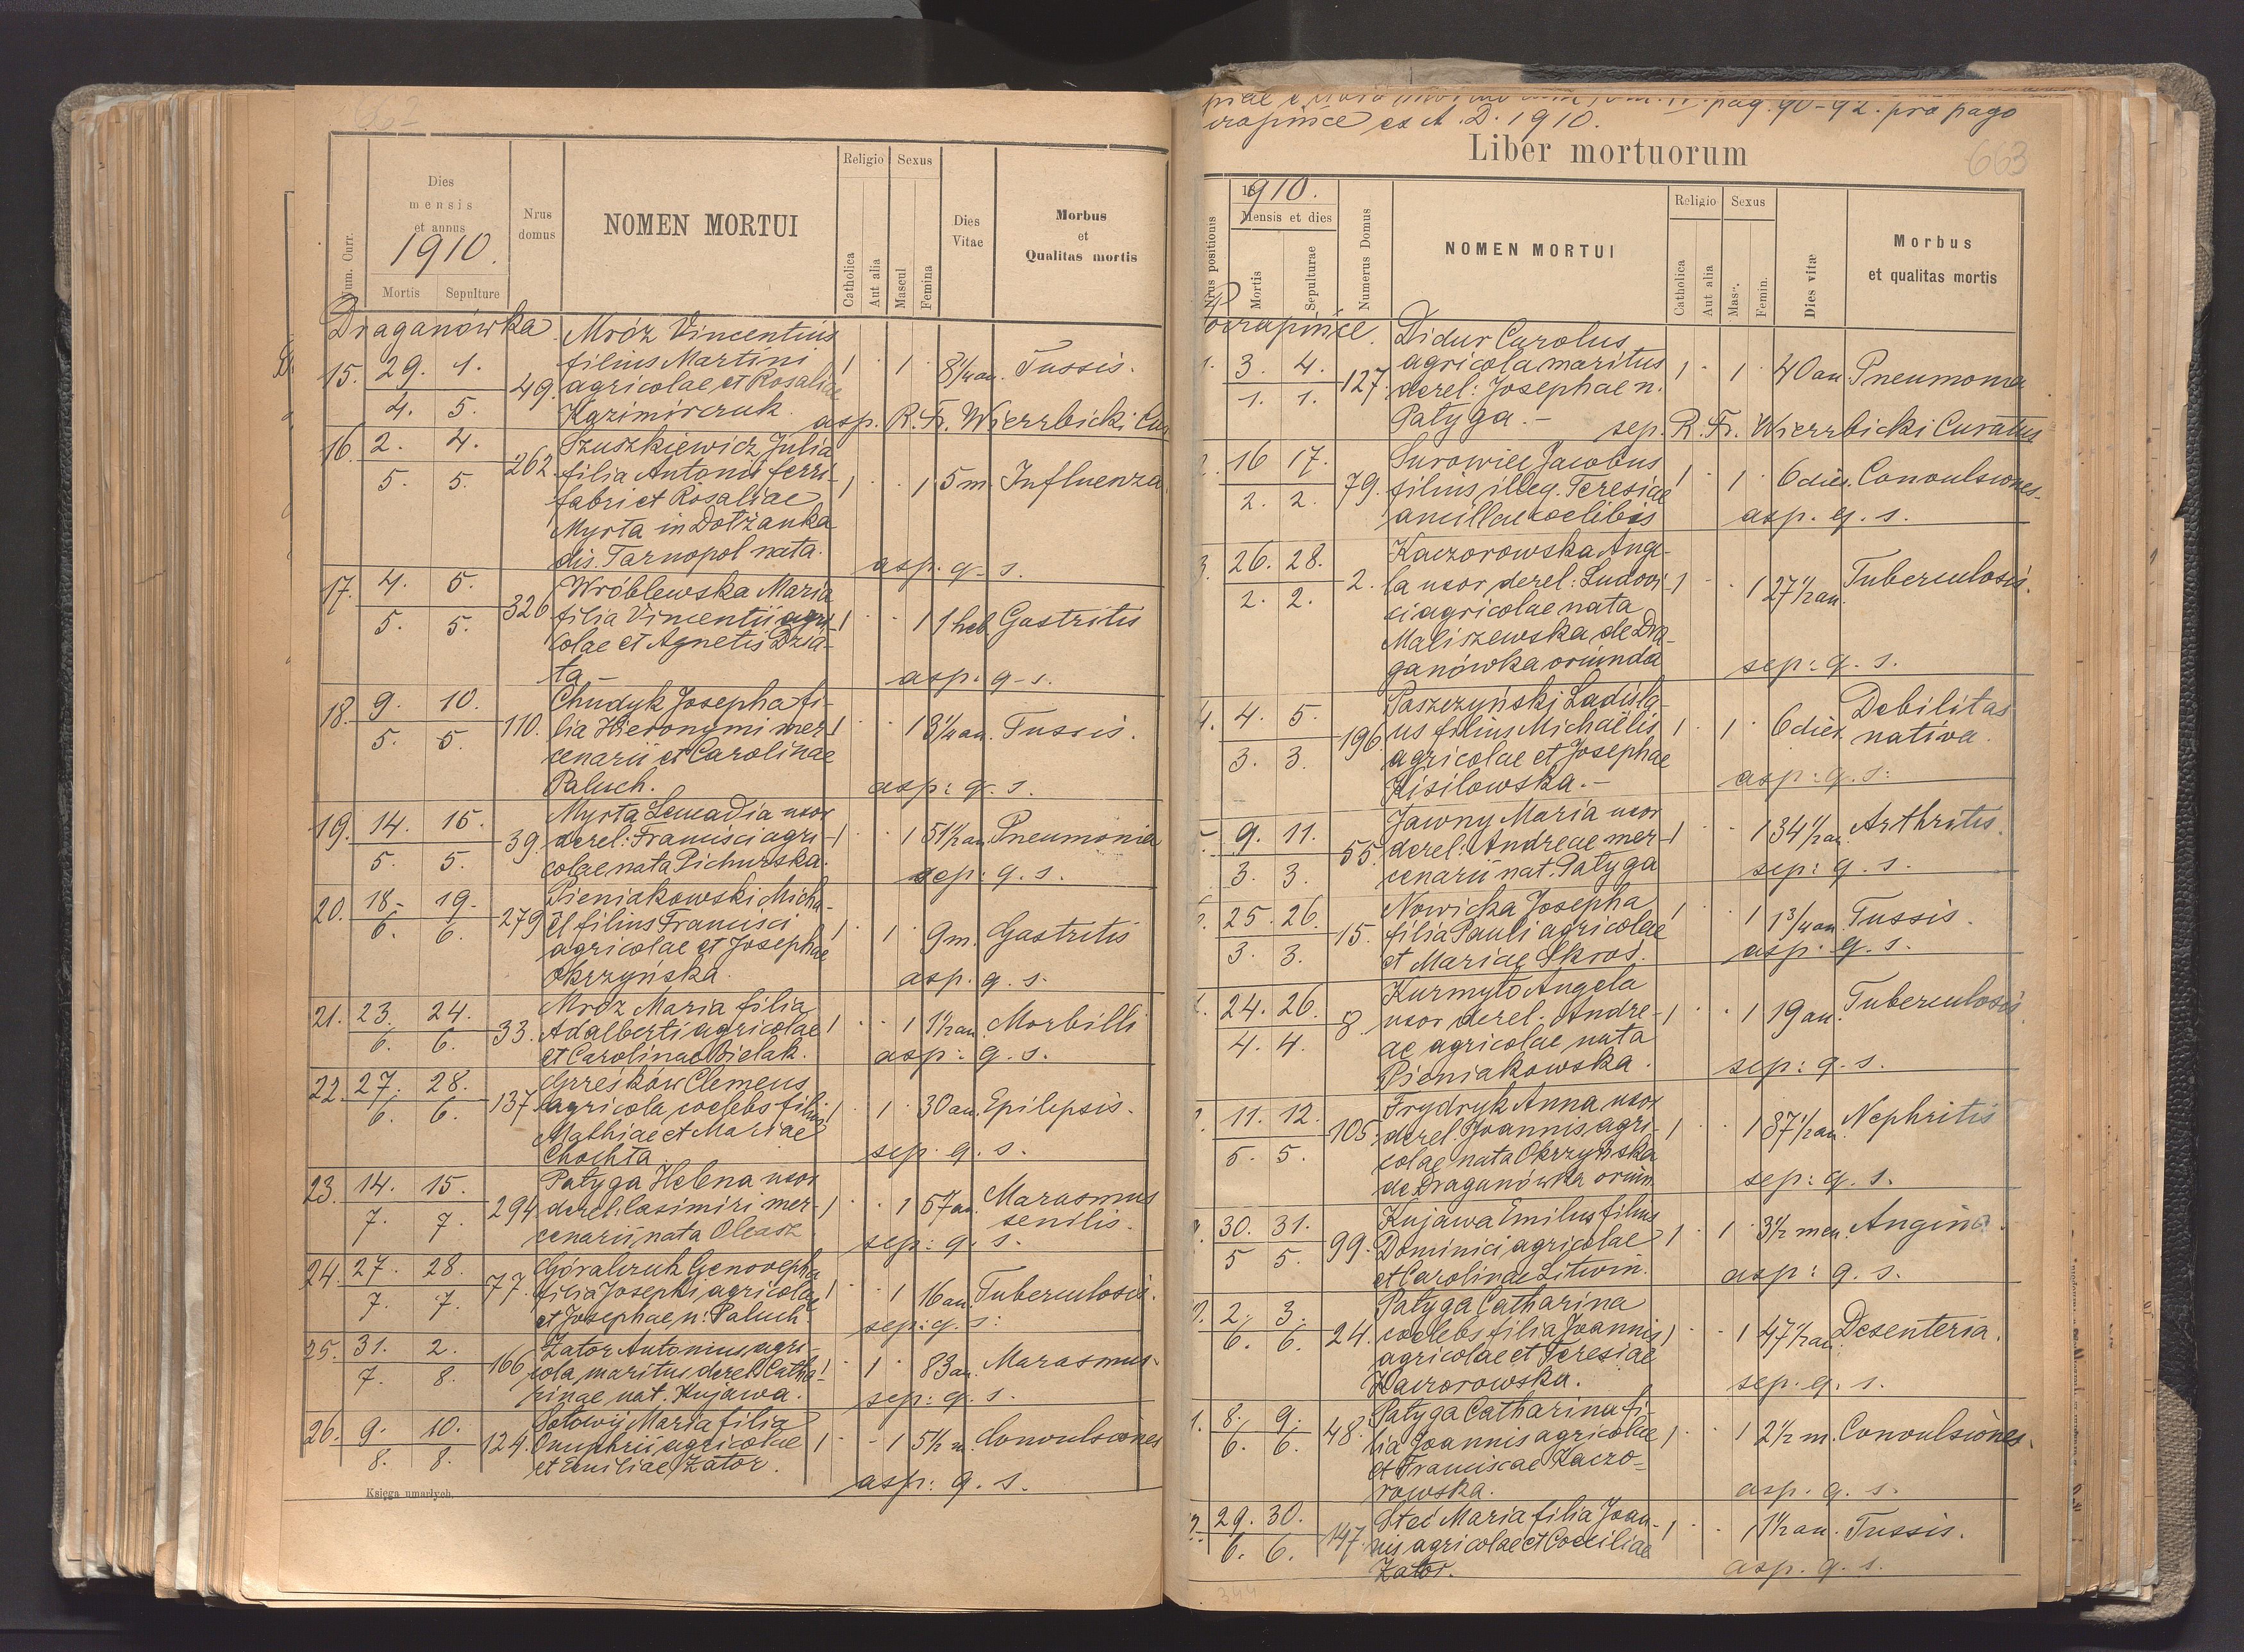 662
Dies
mensis
et annus
1910.
Mortis
Sepulture
Num. Curr.
Nrus
domus
NOMEN MORTUI
Religio
Sexus
Catholica
Aut alia
Mascul
Femina
Dies
Vitae
Morbus
et
Qualitas mortis
Draganówka. Mróz Vincentius
15. 29. 1. filius Martini 1 1 3¼ an. Tussis.
4. 5. 49. agricolae et Rosaliae
Kazimirczuk. asp. R. Fr. Wierzbicki Cur
16. 2. 4. Szuszkiewicz Julia
5. 5. 262. filia Antonii ferri- 1 1 5 m. Influenza
fabri et Rosaliae
Myrta in Dołżanka
dis. Tarnopol nata. asp. q. s.
17. 4. 5. Wróblewska Maria
5. 5. 326 filia Vincentii agri- 1 1 1 heb. Gastritis
colae et Agnetis Dzia-
ta - asp. q. s.
18. 9. 10. Chudyk Josepha fi-
5. 5. 110. lia Hieronymi mer- 1 1 3¼ an. Tussis.
cenarii et Carolinae
Paluch. asp: q. s.
19. 14. 15. Myrta Leucadia uxor
5. 5. 39. derel: Francisci agri- 1 1 51½ an. Pneumonia
colae nata Pichurska. sep: q. s.
20. 18. 19. Pieniakowski Micha-
6. 6. 279 ël filius Francisci 1 1 9 m. Gastritis
agricolae et Josephae
Okrzyńska. asp. q. s.
21. 23. 24. Mróz Maria filia
6. 6. 33. Adalberti agricolae 1 1 1½ an. Morbilli
et Carolinae Bielak. asp: q. s.
22. 27. 28. Grześków Clemens
6. 6. 137. agricola, coelebs filius 1 1 30 an. Epilepsis.
Mathiae et Mariae
Chochta. sep. q. s.
23. 14. 15. Patyga Helena uxor
7. 7. 294 derel. Casimiri mer- 1 1 57 an. Marasmus
cenarii, nata Oleasz senilis.
sep: q. s.
24. 27. 28. Góralczuk Genovepha
7. 7. 77. filia Josephi agricolae 1 1 16 an. Tuberculosis.
et Josephae, n: Paluch. sep: q. s:
25. 31. 2. Zator Antonius agri-
7. 8. 166 cola, maritus derel. Catha- 1 1 83 an. Marasmus.
rinae nat. Kujawa. sep: q. s.
26. 9. 10. Sołowij Maria filia
8. 8. 124. Onuphrii agricolae 1 1 5½ m. Convulsiones
et Emiliae Zator. asp: q. s.
Księga umarłych.
pag. 90-92. pro pago
ex A. D. 1910.
Liber mortuorum
663
1910.
Nrus positionis
Mensis et dies
Mortis
Sepulturae
Numerus Domus
NOMEN MORTUI
Religio
Sexus
Catholica
Aut alia
Masc.
Femin.
Dies vitæ
Morbus
et qualitas mortis
Poczapińce. Didur Carolus
1. 3. 4. agricola maritus 1 1 40 an. Pneumonia
1. 1. 127. derel: Josephae n.
Patyga. - sep. R. Fr. Wierzbicki Curatus
2. 16 17. Surowiec Jacobus
2. 2. 79. filius illeg. Teresiae 1 1 6 dies. Convulsiones.
ancillae coelibis asp. q. s.
3. 26. 28. Kaczorowska Ange-
2. 2. 2. la uxor derel: Ludovi- 1 1 27½ an. Tuberculosis.
ci agricolae nata
Maliszewska de Dra-
ganówka oriunda sep: q. s.
4. 4. 5. Paszczyński Ladisla-
3. 3. 196 us filius Michaëlis 1 1 6 dies. Debilitas
agricolae et Josephae nativa.
Kisilowska. - asp: q. s:
9. 11. Jawny Maria uxor
3. 3. 55 derel: Andreae mer- 1 1 34½ an. Arthritis.
cenarii nat. Patyga sep: q. s.
25. 26. Nowicka Josepha
3. 3. 15. filia Pauli agricolae 1 1 1¾ an. Tussis.
et Mariae Skroś. asp. q. s.
24. 26. Kurmyto Angela
4. 4. 8 uxor derel. Andre- 1 1 19 an. Tuberculosis
ae agricolae nata
Pieniakowska. sep: q. s.
11. 12. Frydryk Anna uxor
5. 5. 105. derel. Joannis agri- 1 1 37½ an. Nephritis
colae nata Okrzyńska
de Draganówka oriun. sep: q. s.
30. 31. Kujawa Emilus filius
5 5. 99. Dominici agricolae 1 1 3½ men. Angina.
et Carolinae Litwin. asp: q. s.
2. 3. Patyga Catharina
6. 6. 24. coelebs filia Joannis 1 1 47½ an. Desenteria.
agricolae et Teresiae
Kaczorowska. sep. q. s.
8. 9. Patyga Catharina fi-
6. 6. 48. lia Joannis agricolae 1 1 2½ m. Convulsiones.
et Franciscae Kaczo-
rowska. asp. q. s.
29. 30. Stec Maria filia Joan-
6. 6. 147. nis agricolae et Coeciliae 1 1 1½ an. Tussis.
Zator. asp. q. s.
344